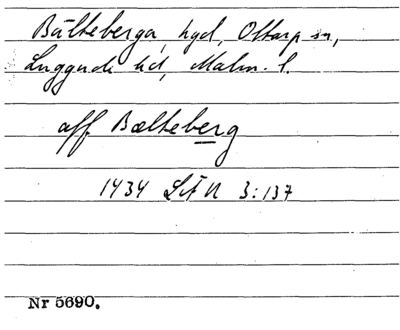 Bälteberga, hgd, Ottarp sn,
Luggude hd, Malm. l.
aff Bælteberg
1434 LÄU 3:137
Nr 5690.